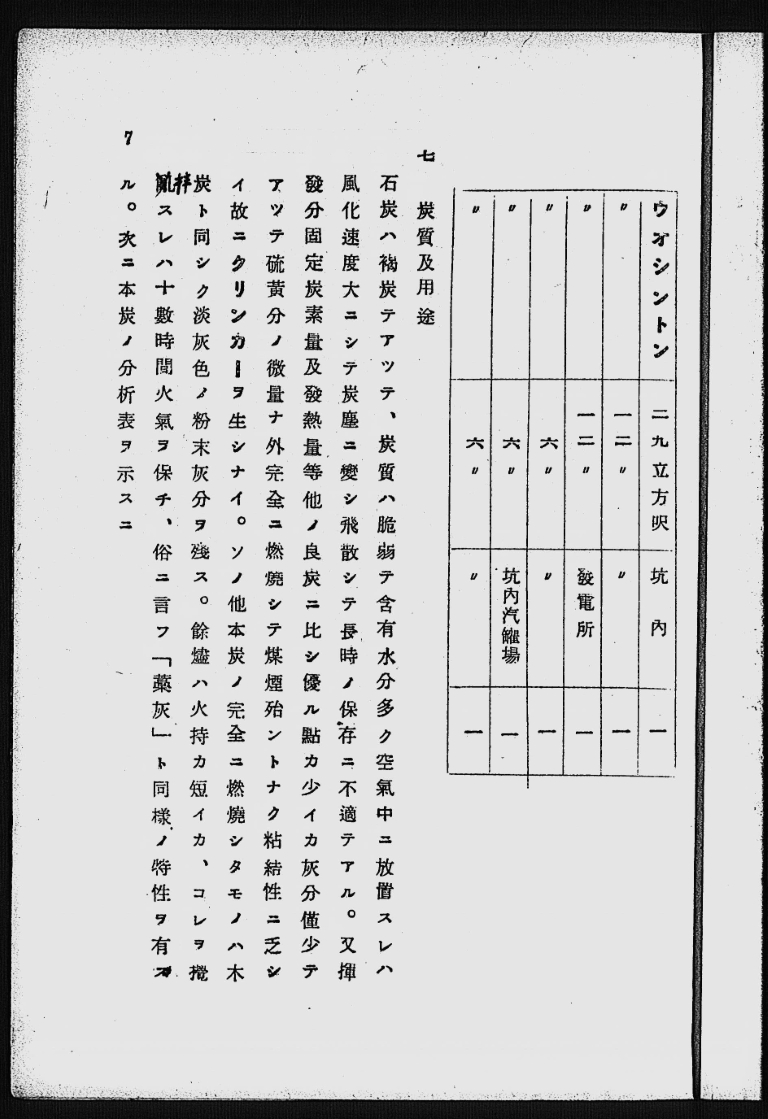 ウオシントン 二九立方呎 坑內 一
〃 一二〃 〃 一
〃 一二〃 發電所 一
〃 六〃 〃 一
〃 六〃 坑內汽罐場 一
〃 六〃 〃 一
七 炭質及用途
石炭ハ褐炭テアツテ、炭質ハ脆弱テ含有水分多ク空氣中ニ放置スレハ
風化速度大ニシテ炭塵ニ變シ飛散シテ長時ノ保存ニ不適テアル。又揮
發分固定炭素量及發熱量等他ノ良炭ニ比シ優ル點カ少イカ灰分僅少テ
アツテ硫黃分ノ微量ナ外完全ニ燃燒シテ煤煙殆ントナク粘結性ニ乏シ
イ故ニクリンカーヲ生シナイ。ソノ他本炭ノ完全ニ燃燒シタモノハ木
炭ト同シク淡灰色ノ粉末灰分ヲ殘ス。餘燼ハ火持カ短イカ、コレヲ攪
拌スレハ十數時間火氣ヲ保チ、俗ニ言フ「藁灰」ト同樣ノ特性ヲ有ス
ル。次ニ本炭ノ分析表ヲ示スニ
7